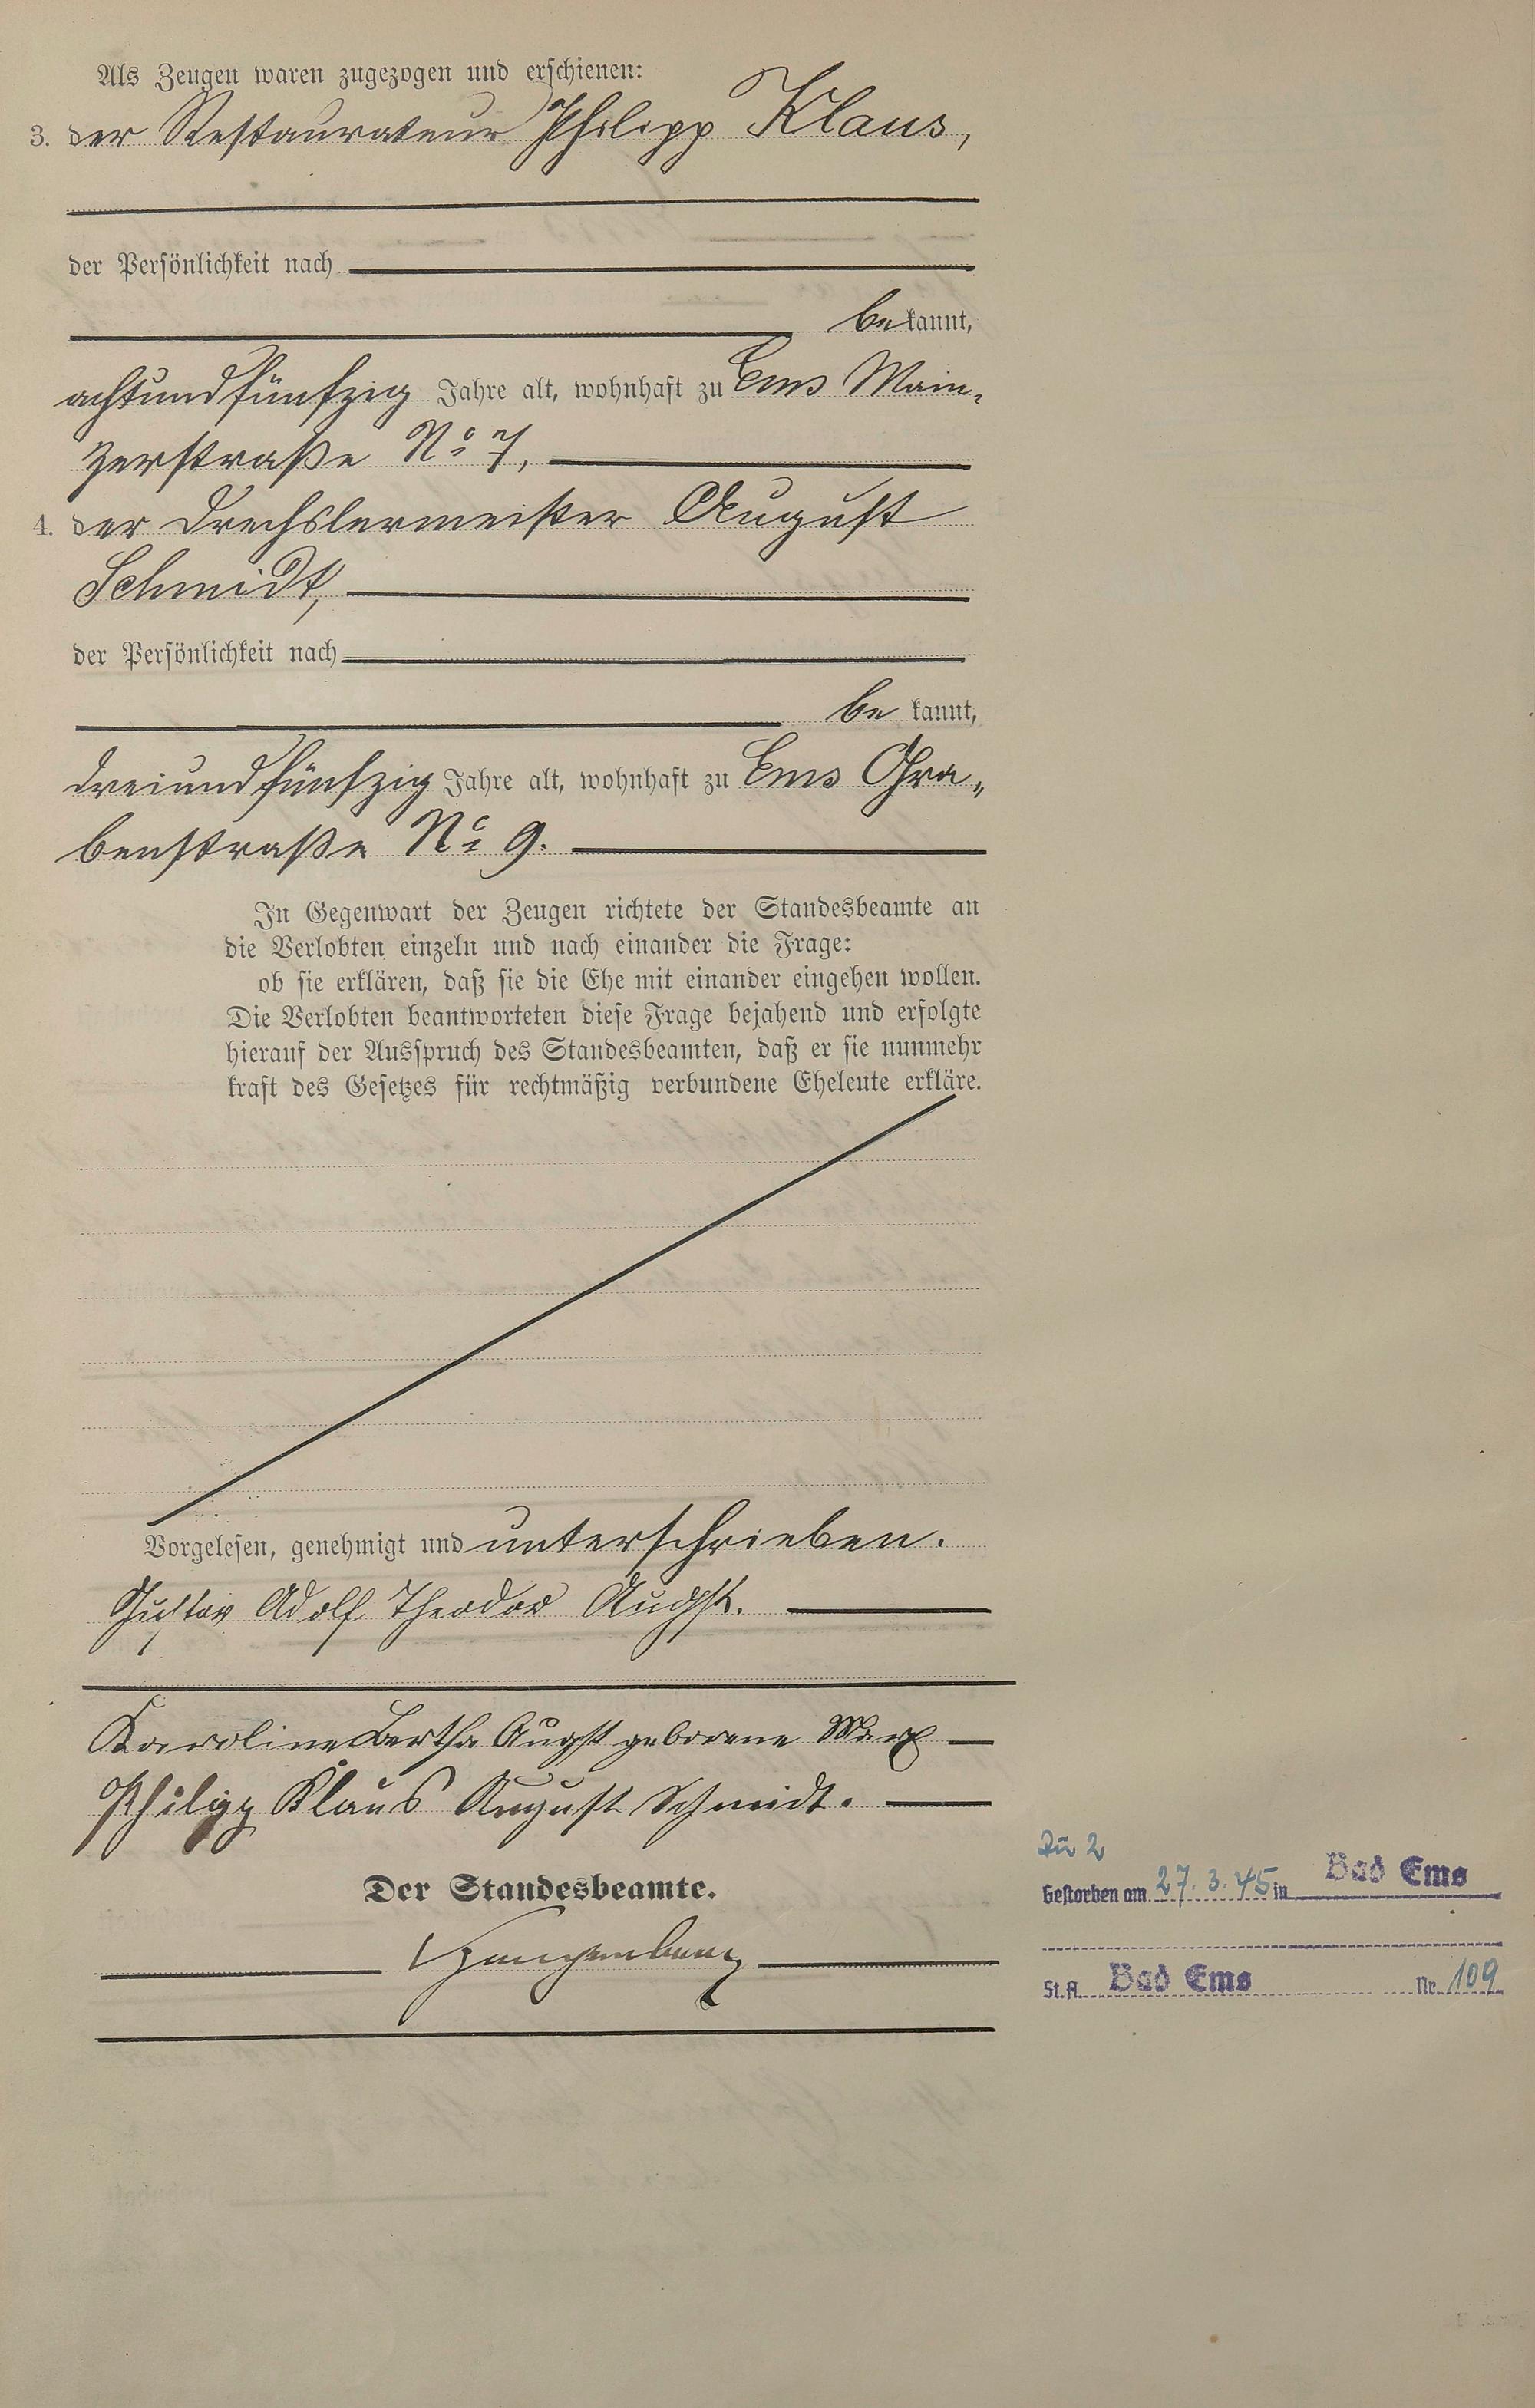 Als Zeugen waren zugezogen und erschienen:
3. der Restaurateur Philipp Klaus,
der Persönlichkeit nach
bekannt,
achtundfünfzig Jahre alt, wohnhaft zu Ems Main-
zerstraße No 7,
4. der Drechslermeister August
Schmidt,
der Persönlichkeit nach
be kannt,
dreiundfünfzig Jahre alt, wohnhaft zu Ems Gra-
benstraße No 9.
In Gegenwart der Zeugen richtete der Standesbeamte an
die Verlobten einzeln und nach einander die Frage:
ob sie erklären, daß sie die Ehe mit einander eingehen wollen.
Die Verlobten beantworteten diese Frage bejahend und erfolgte
hierauf der Ausspruch des Standesbeamten, daß er sie nunmehr
kraft des Gesetzes für rechtmäßig verbundene Eheleute erkläre.
Vorgelesen, genehmigt und unterschrieben.
Gustav Adolf Theodor Augst.
Karoline Bertha Augst geborene Marx
Philipp Klaus August Schmidt.
Der Standesbeamte.
Zu 2
Gestorben am 27.3.45 in Bad Ems
St.A. Bad Ems Nr. 109